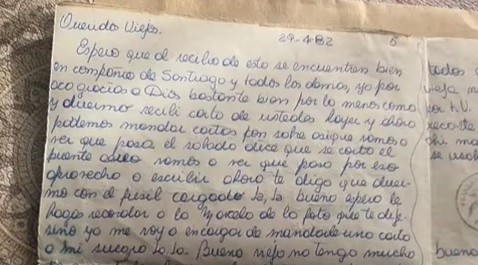 Querido Viejo.
29-4-82
Espero que al recibo de esto se encuentren bien
en compañia de Santiago y todos los demas, yo por
aca gracias a Dios bastante bien por lo menos como
y duermo recibi carta de ustedes hayer y ahora
podemos mandar cartas por sobre asique vamos a
ver que pasa el sabado dice que se corta el
puente aereo vamos a ver que pasa por eso
aprovecho a escribir ahora te digo que duer-
mo con el fusil cargado Ja, Ja. Bueno espero le
hagas recordar a lo de la foto que te dije
sino yo me voy a encargar de mandarle una carta
a mi suegra Ja, Ja. Bueno viejo no tengo mucho
todos
vieja
por t.V.
mi
bueno